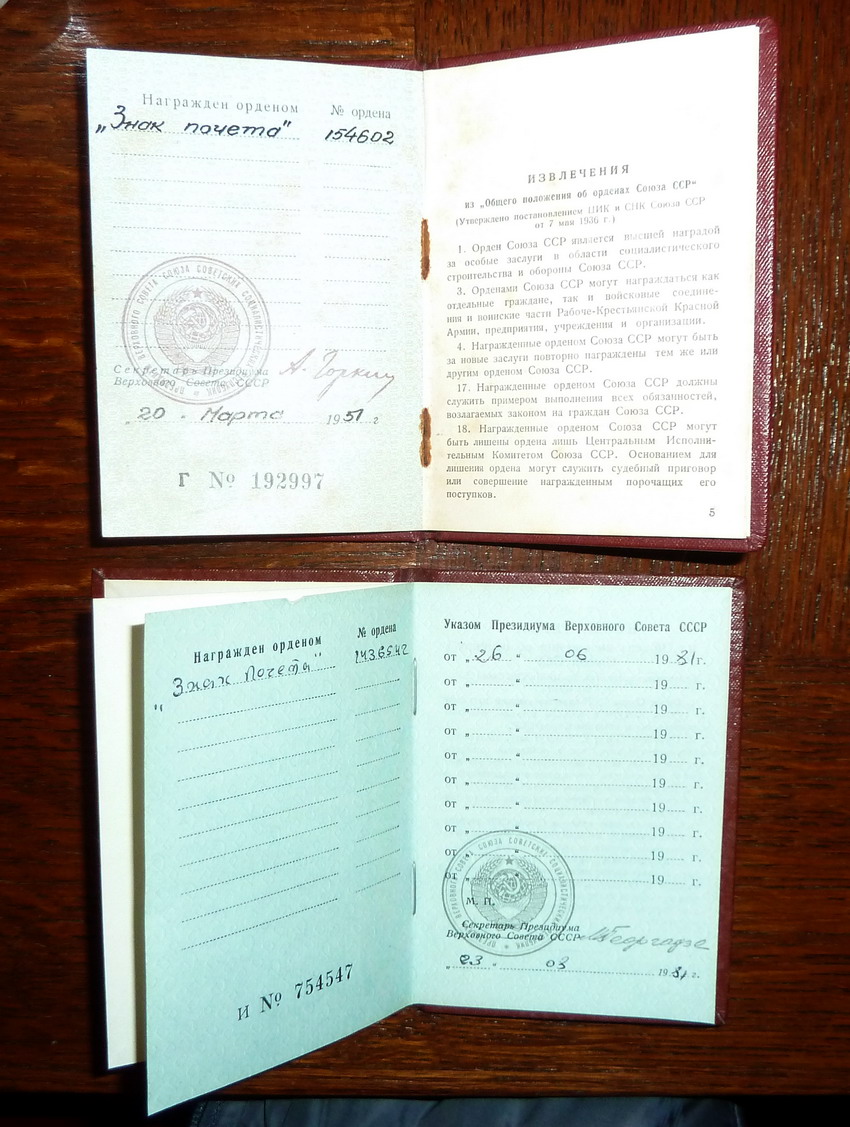 Награжден орденом № ордена
„Знак почета" 154602
ВЕРХОВНОГО СОВЕТА СОЮЗА СОВЕТСКИХ СОЦИАЛИСТИЧЕСКИХ
Секретарь Президиума
Верховного Совета СССР
А. Горкин
„20 " Марта 1951 г
Г № 192997
ИЗВЛЕЧЕНИЯ
из „Общего положения об орденах Союза ССР"
(Утверждено постановлением ЦИК и СНК Союза ССР
от 7 мая 1936 г.)
1. Орден Союза ССР является высшей наградой
за особые заслуги в области социалистического
строительства и обороны Союза ССР.
3. Орденами Союза ССР могут награждаться как
отдельные граждане, так и войсковые соедине-
ния и воинские части Рабоче-Крестьянской Красной
Армии, предприятия, учреждения и организации.
4. Награжденные орденом Союза ССР могут быть
за новые заслуги повторно награждены тем же или
другим орденом Союза ССР.
17. Награжденные орденом Союза ССР должны
служить примером выполнения всех обязанностей,
возлагаемых законом на граждан Союза ССР.
18. Награжденные орденом Союза ССР могут
быть лишены ордена лишь Центральным Исполни-
тельным Комитетом Союза ССР. Основанием для
лишения ордена могут служить судебный приговор
или совершение награжденным порочащих его
поступков.
5
Награжден орденом № ордена
„Знак Почета"
И № 754547
Указом Президиума Верховного Совета СССР
от „26 " 06 1981 г.
от „ " 19 г.
от „ " 19 г.
от „ " 19 г.
от „ " 19 г.
от „ " 19 г.
от „ " 19 г.
от „ " 19 г.
от „ " 19 г.
от „ " 19 г.
ВЕРХОВНОГО СОВЕТА СОЮЗА СОВЕТСКИХ СОЦИАЛИСТИЧЕСКИХ
М. П.
Секретарь Президиума
Верховного Совета СССР
МГеоргадзе
„23 " 03 1981 г.